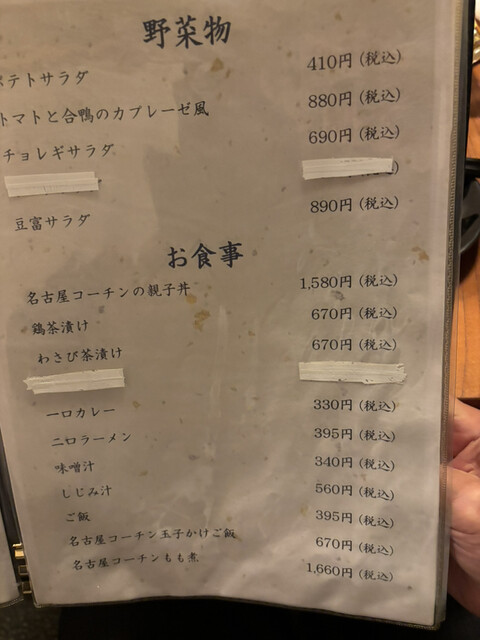 野菜物
ポテトサラダ 410円(税込)
トマトと合鴨のカプレーゼ風 880円(税込)
チョレギサラダ 690円(税込)
豆富サラダ 890円(税込)
お食事
名古屋コーチンの親子丼 1,580円(税込)
鶏茶漬け 670円(税込)
わさび茶漬け 670円(税込)
一口カレー 330円(税込)
二口ラーメン 395円(税込)
味噌汁 340円(税込)
しじみ汁 560円(税込)
ご飯 395円(税込)
名古屋コーチン玉子かけご飯 670円(税込)
名古屋コーチンもも煮 1,660円(税込)